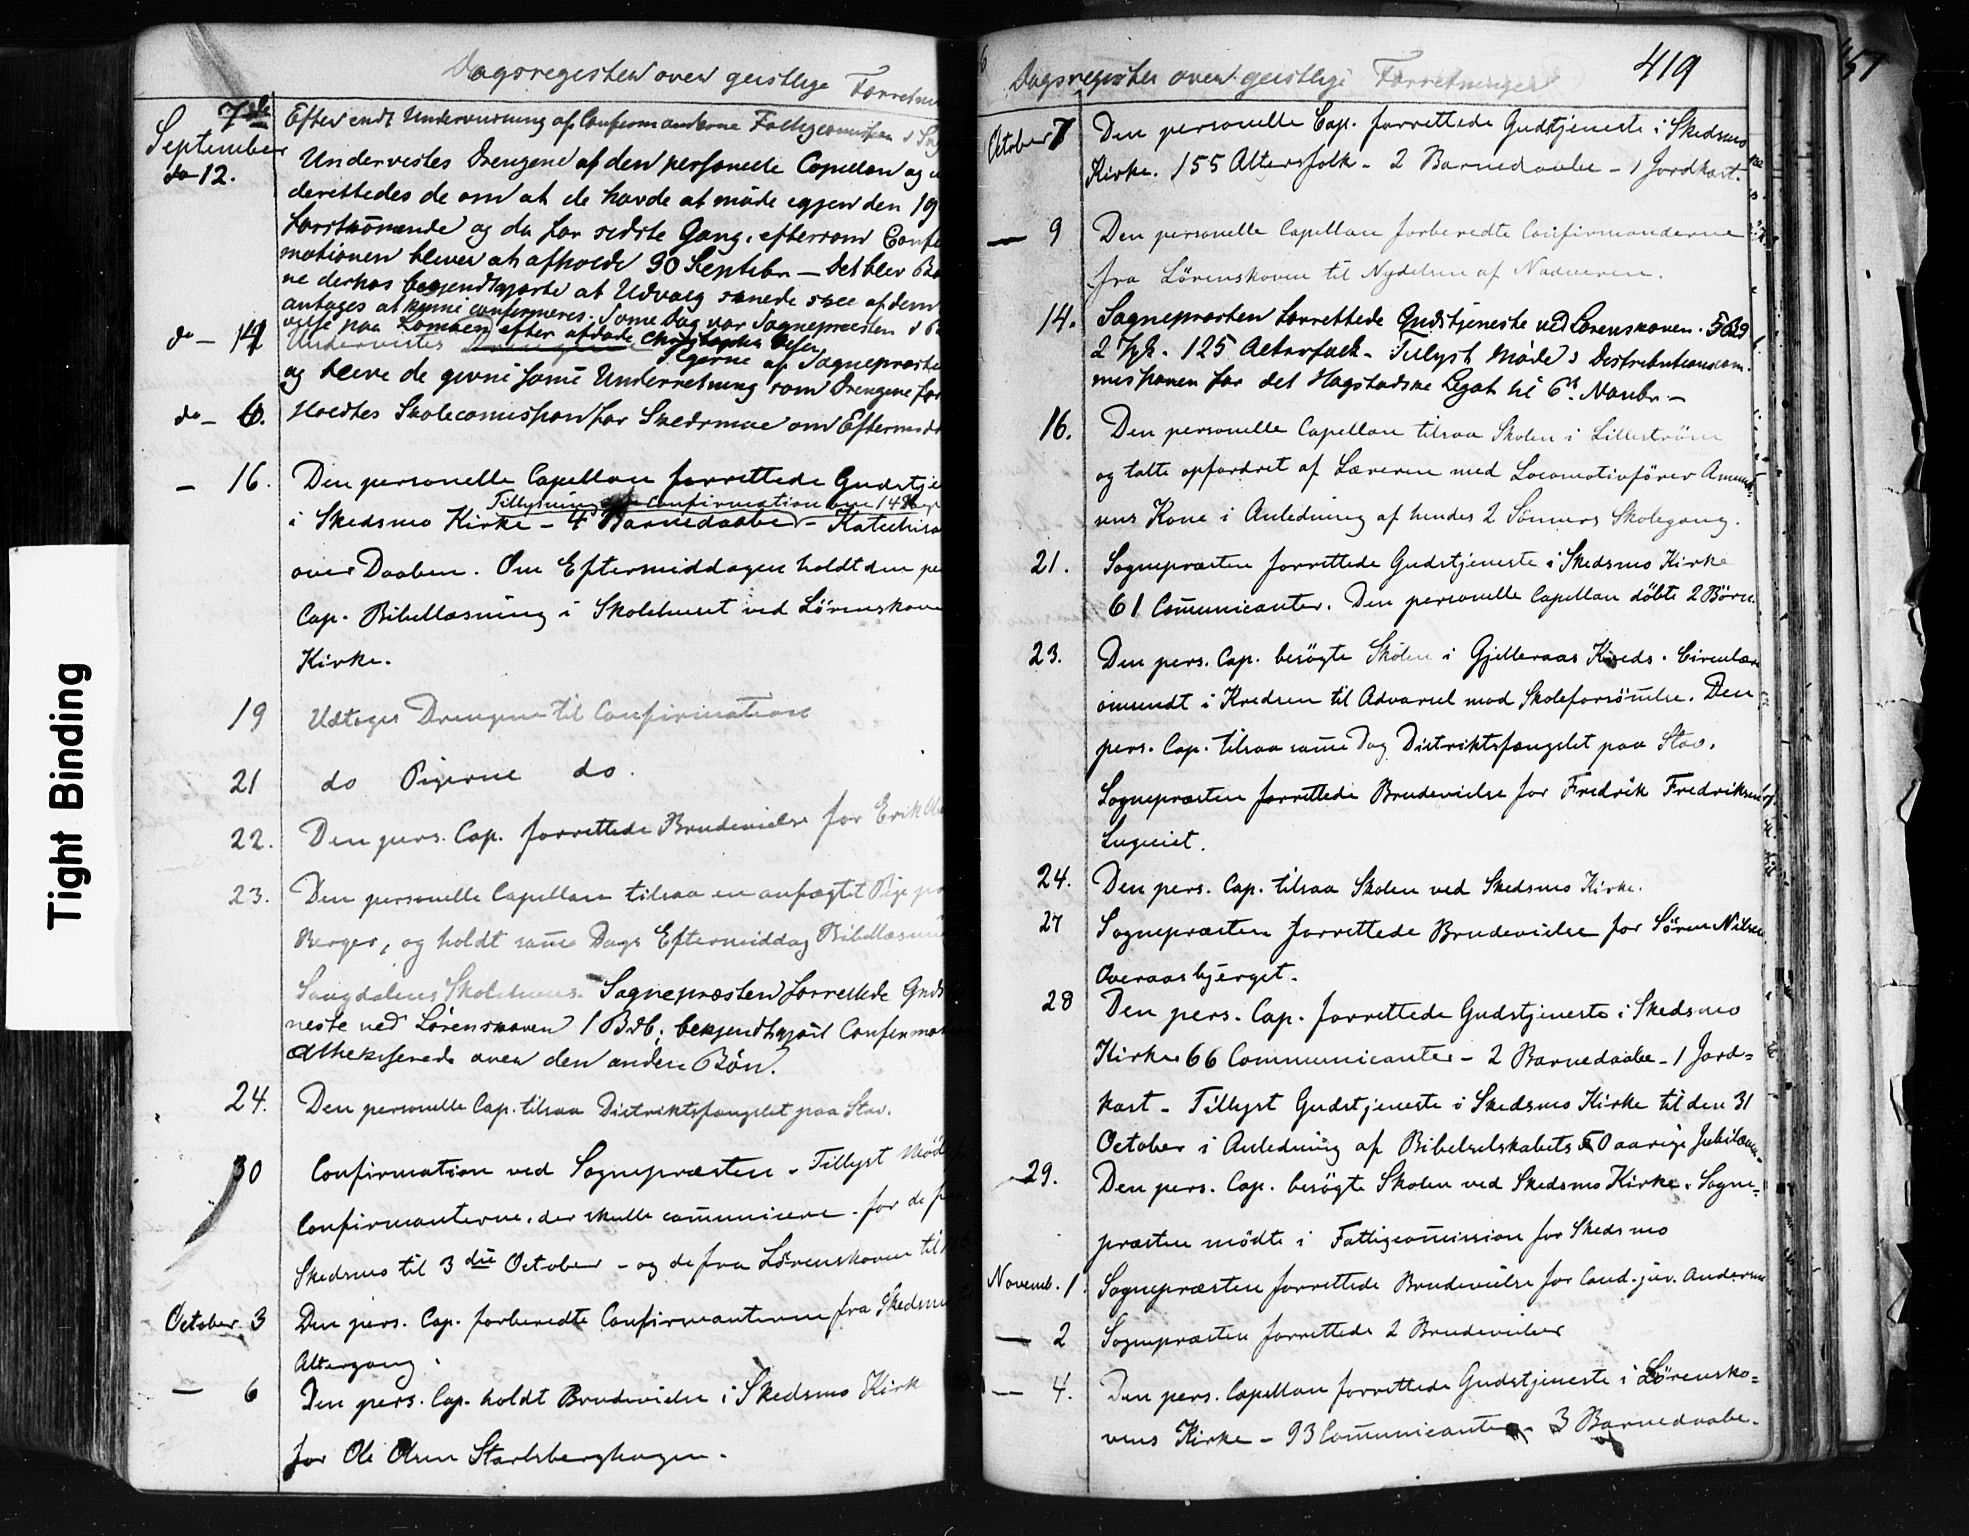 Dagsregister over geistlige Forretn
7de Efter endt Underviisning af Confirmanderne Fattigcomission i
September
do 12. Undervistes Drengene af den personelle Capellan og
derettedes de om at de havde at møde igjen den 19
førstkommende og da for sidste Gang, eftersom Confir
mationen bliver at afholde 30 Septebr – Det blev
ne derhos bekjendtgjorte at Udvalg skede af dem
antages at kunne confirmeres. Same Dag var Sognepræsten
paa efter afdøde Christopher
do – 14 Undervistes Pigerne af Sognepræste
og bleve de givne same Underretning som Drengene
do – Holdtes Skolecomission for Skedsmoe om Eftermid
– 16. Den personelle Capellan forrettede Gudstje
Tillysning Confirmation
i Skedsmo Kirke – 4 Barnedaabe – Katechisa
over Daaben. Om Eftermiddagen holdt den pe
Cap. Bibellæsning i Skolehuset ved Lørenskove
Kirke.
19 Udtoges Drengene til Confirmation
21 do Pigerne do.
22. Den pers. Cap. forrettede Brudevielse for Erik
23. Den personelle Capellan tilsaa en anfægtet Pige
Berger, og holdt same Dags Eftermiddag Bibellæsni
Sangdalens Skolehuus. Sognepræsten forrettede Guds
neste ved Lørenskoven 1 Bdb. bekjendtgjort Confirmat
Athekiserede over den anden Bøn.
24. Den personelle Cap. tilsaa Distriktsfængslet paa Stav.
30 Confirmation ved Sognepræsten – Tillyst Møde
Confirmanterne, der skulle communicere – for de f
Skedsmo til 3die October – og de fra Lørenskoven til
October 3 Den pers. Cap. forberedte Confirmanterne fra Skedsmo
Altergang.
— 6 Den pers. Cap. holdt Brudevielse i Skedsmo Kirk
for Ole Olsen Starlsberghagen.
Dagsregister over geistlige Forretninger 419
457
October 7 Den personelle Cap. forrettede Gudstjeneste i Skedsmo
Kirke. 155 Altersfolk – 2 Barnedaabe – 1 Jordkast.
— 9 Den personelle Capellan forberedte Confirmanderne
fra Lørenskoven til Nydelsen af Nadveren.
14. Sognepræsten forrettede Gudstjeneste ved Lørenskoven.
125 Altersfolk – Tillyst Møde i Distributionscom
missionen for det Hagstadske Legat til 6t Novbr. –
16. Den personelle Capellan tilsaa Skolen i Lillestrøm
og talte opfordret af Læreren med Locomotivfører Amund
sens Kone i Anledning af hendes 2 Sønners Skolegang.
21. Sognepræsten forrettede Gudstjeneste i Skedsmo Kirke
61 Communicanter. Den personelle Capellan døbte 2 Børn.
23. Den pers. Cap. besøgte Skolen i Gjelleraas Kreds. Circulære
omsendt i Kredsen til Advarsel mod Skoleforsømelse. Den
pers. Cap. tilsaa same Dag Distriktsfængslet paa Stav.
Sognepræsten forrettede Brudevielse for Fredrik Fredriksen
24. Den pers. Cap. tilsaa Skolen ved Skedsmo Kirke.
27 Sognepræsten forrettede Brudevielse for Søren Nilsen
Overaasbjerget.
28 Den pers. Cap. forrettede Gudstjeneste i Skedsmo
Kirke 66 Communicanter – 2 Barnedaabe – 1 Jord=
kast – Tillyst Gudstjeneste i Skedsmo Kirke til den 31
October i Anledning af Bibelselskabets 50 aarige Jubilæum.
29. Den pers. Cap. besøgte Skolen ved Skedsmo Kirke. Sogne=
præsten mødte i Fattigcomission for Skedsmo
Novemb. 1. Sognepræsten forrettede Brudevielse for Cand. jur. Andersen
— 2 Sognepræsten forrettede 2 Brudevielser
— 4. Den pers. Capellan forrettede Gudstjeneste i Lørensko=
vens Kirke – 93 Communicanter – 3 Barnedaabe.
Tight Binding